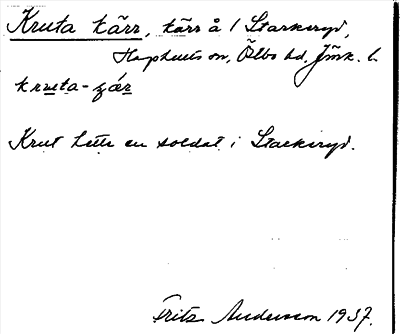 Kruta kärr, kärr å 1 Starkeryd,
Haghults sn, Östbo hd, Jönk. l.
kruta-çár
Krut hette en soldat i Starkeryd.
Fritz Andersson 1937.